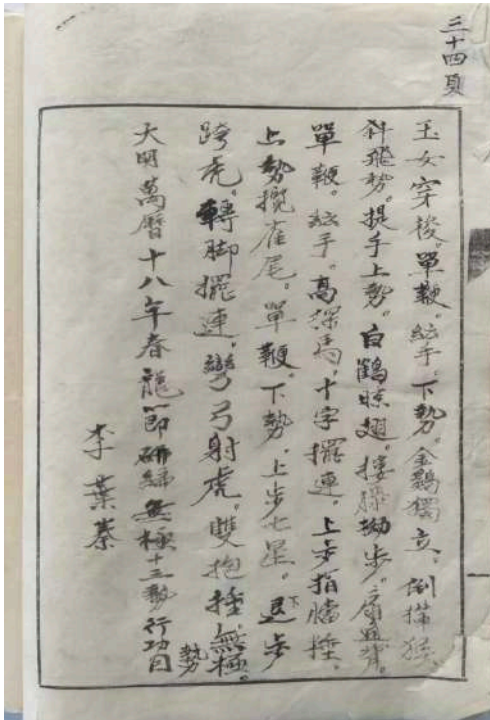 三十四頁
玉女穿後。單鞭。紜手。下勢。金鷄獨立。倒攆猴。
斜飛勢。提手上勢。白鶴晾翅。摟膝拗步。扇通背。
單鞭。紜手。高探馬。十字擺連。上步指膛捶。
上勢攬雀尾。單鞭。下勢。上步七星。下退步
跨虎。轉脚擺連。彎弓射虎。雙抱捶。無極勢。
大明萬曆十八年春龍節研編無極十三勢行功目
李葉蓁